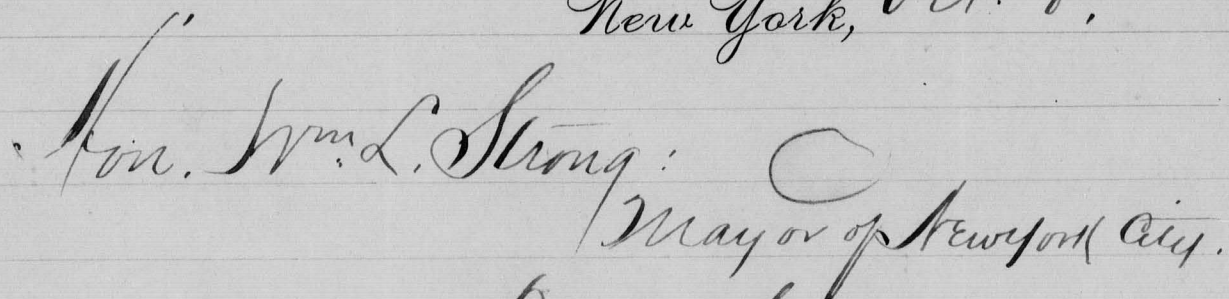 New York,
Hon. Wm. L. Strong:
Mayor of New York City.